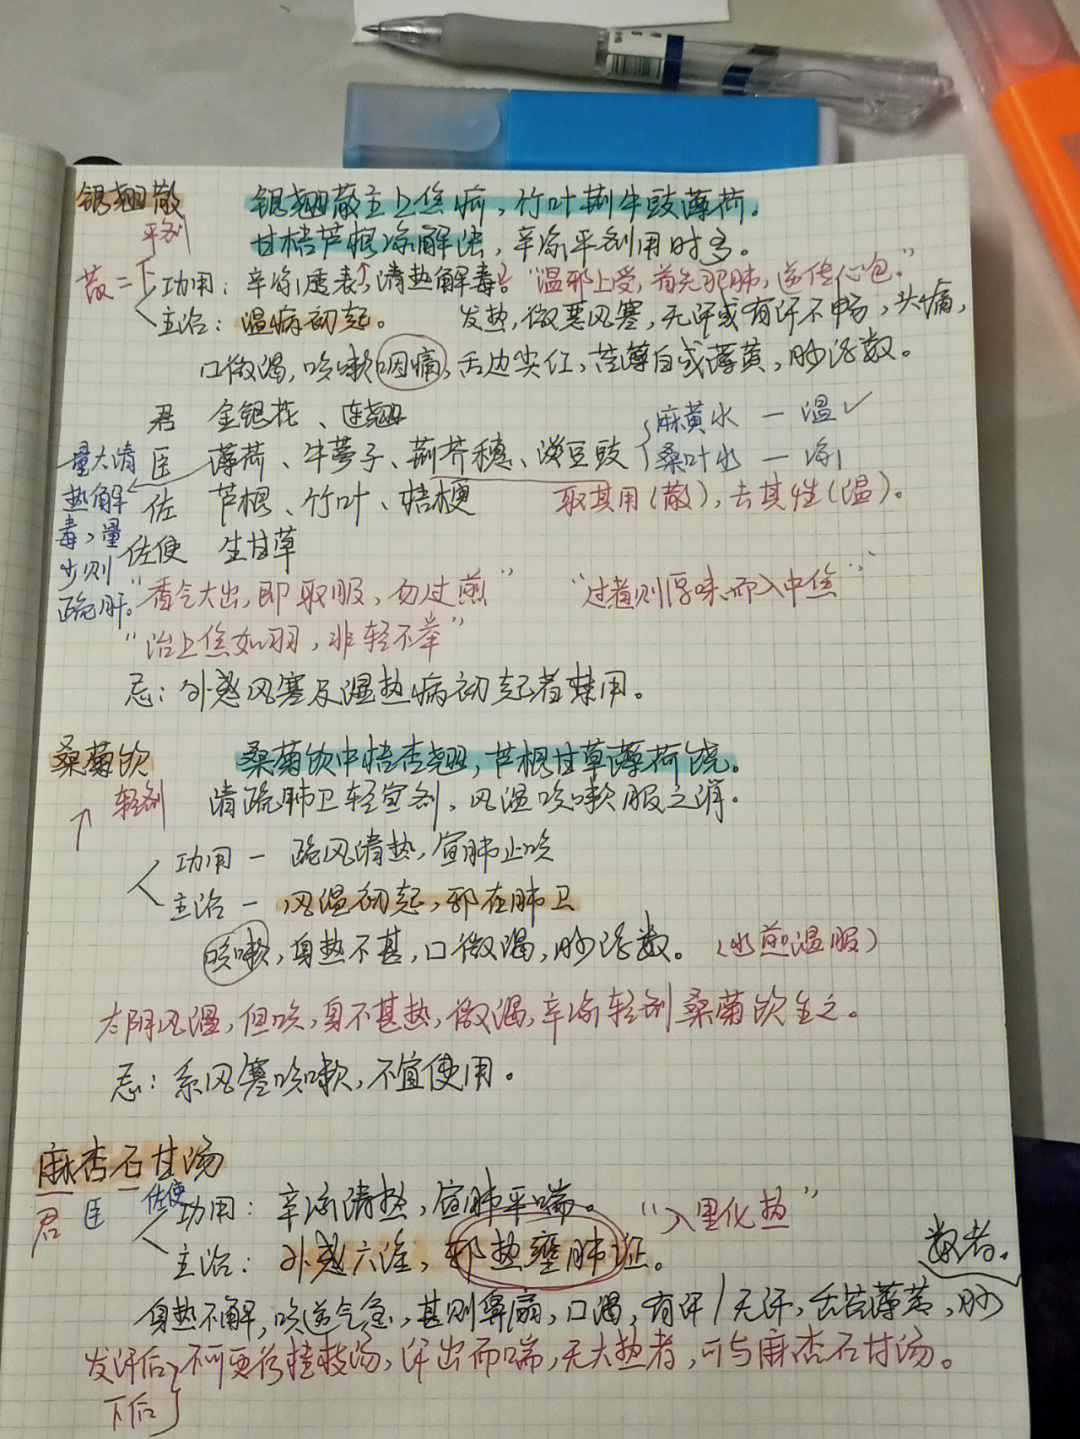 银翘散 银翘散主上焦疴，竹叶荆牛豉薄荷。
平剂 甘桔芦根凉解法，辛凉平剂用时多。
散=下 功用：辛凉透表↑，清热解毒。 “温邪上受，首先犯肺，逆传心包。”
主治：温病初起。 发热，微恶风寒，无汗或有汗不畅，头痛，
口微渴，咳嗽咽痛，舌边尖红，苔薄白或薄黄，脉浮数。
君 金银花、连翘 麻黄水 — 温✓
臣 薄荷、牛蒡子、荆芥穗、淡豆豉 桑叶水 — 凉
佐 芦根、竹叶、桔梗 取其用（散），去其性（温）。
佐使 生甘草
量大清
热解
毒，量
少则
疏肝。
“香气大出，即取服，勿过煎” “过煮则厚味而入中焦”
“治上焦如羽，非轻不举”
忌：外感风寒及湿热病初起者禁用。
桑菊饮 桑菊饮中桔杏翘，芦根甘草薄荷饶。
↑ 轻剂 清疏肺卫轻宣剂，风温咳嗽服之消。
功用 — 疏风清热，宣肺止咳
主治 — 风温初起，邪在肺卫
咳嗽，身热不甚，口微渴，脉浮数。（水煎温服）
太阴风温，但咳，身不甚热，微渴，辛凉轻剂桑菊饮主之。
忌：系风寒咳嗽，不宜使用。
麻杏石甘汤
君 臣 佐使 功用：辛凉清热，宣肺平喘。 “入里化热”
主治：外感六淫，邪热壅肺证。 数者。
身热不解，咳逆气急，甚则鼻扇，口渴，有汗/无汗，舌苔薄黄，脉
发汗后，不可更行桂枝汤，汗出而喘，无大热者，可与麻杏石甘汤。
下后